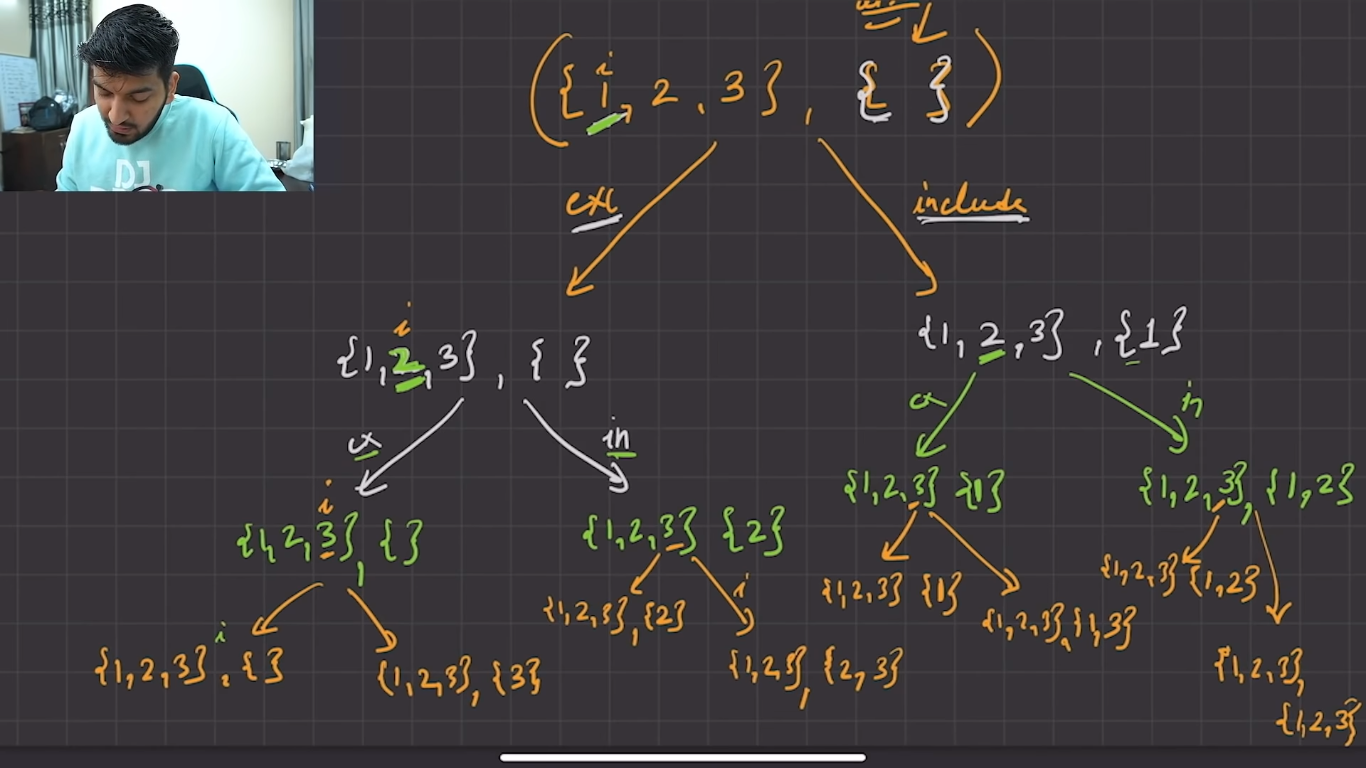 i
({1, 2, 3}, { })
exc
include
i
{1, 2, 3}, { }
{1, 2, 3}, {1}
ex
in
ex
in
i
{1, 2, 3}, {}
{1, 2, 3} {2}
{1, 2, 3} {1}
{1, 2, 3}, {1, 2}
i
i
{1, 2, 3}, {}
{1, 2, 3}, {3}
{1, 2, 3}, {2}
{1, 2, 3}, {2, 3}
{1, 2, 3} {1}
{1, 2, 3}, {1, 3}
{1, 2, 3} {1, 2}
{1, 2, 3},
{1, 2, 3}
DJ